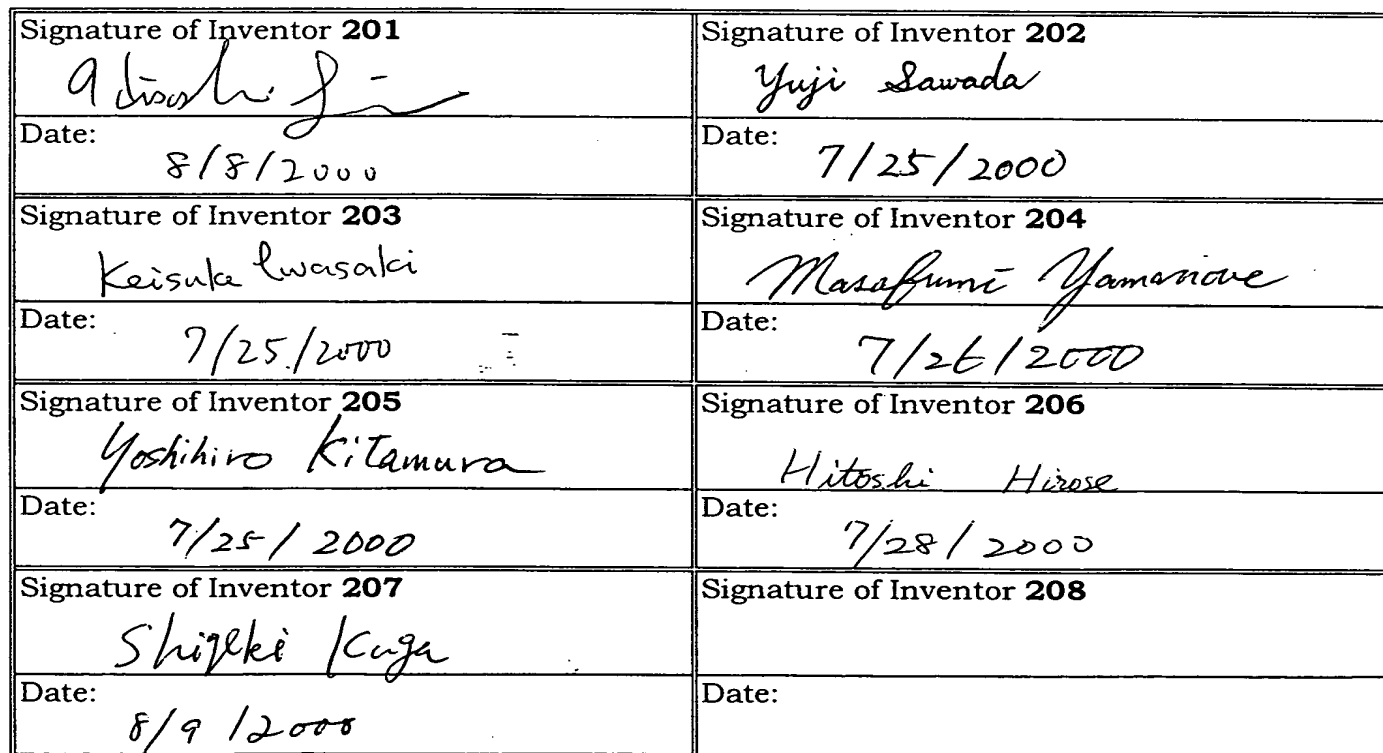 Signature of Inventor 201
Signature of Inventor 202
Yuji Sawada
Date:
8/8/2000
Date:
7/25/2000
Signature of Inventor 203
Keisuke Iwasaki
Signature of Inventor 204
Masafumi
Date:
7/25/2000
Date:
7/26/2000
Signature of Inventor 205
Yoshihiro Kitamura
Signature of Inventor 206
Hitoshi Hirose
Date:
7/25/2000
Date:
7/28/2000
Signature of Inventor 207
Shigeki Kuga
Signature of Inventor 208
Date:
8/9/2000
Date: